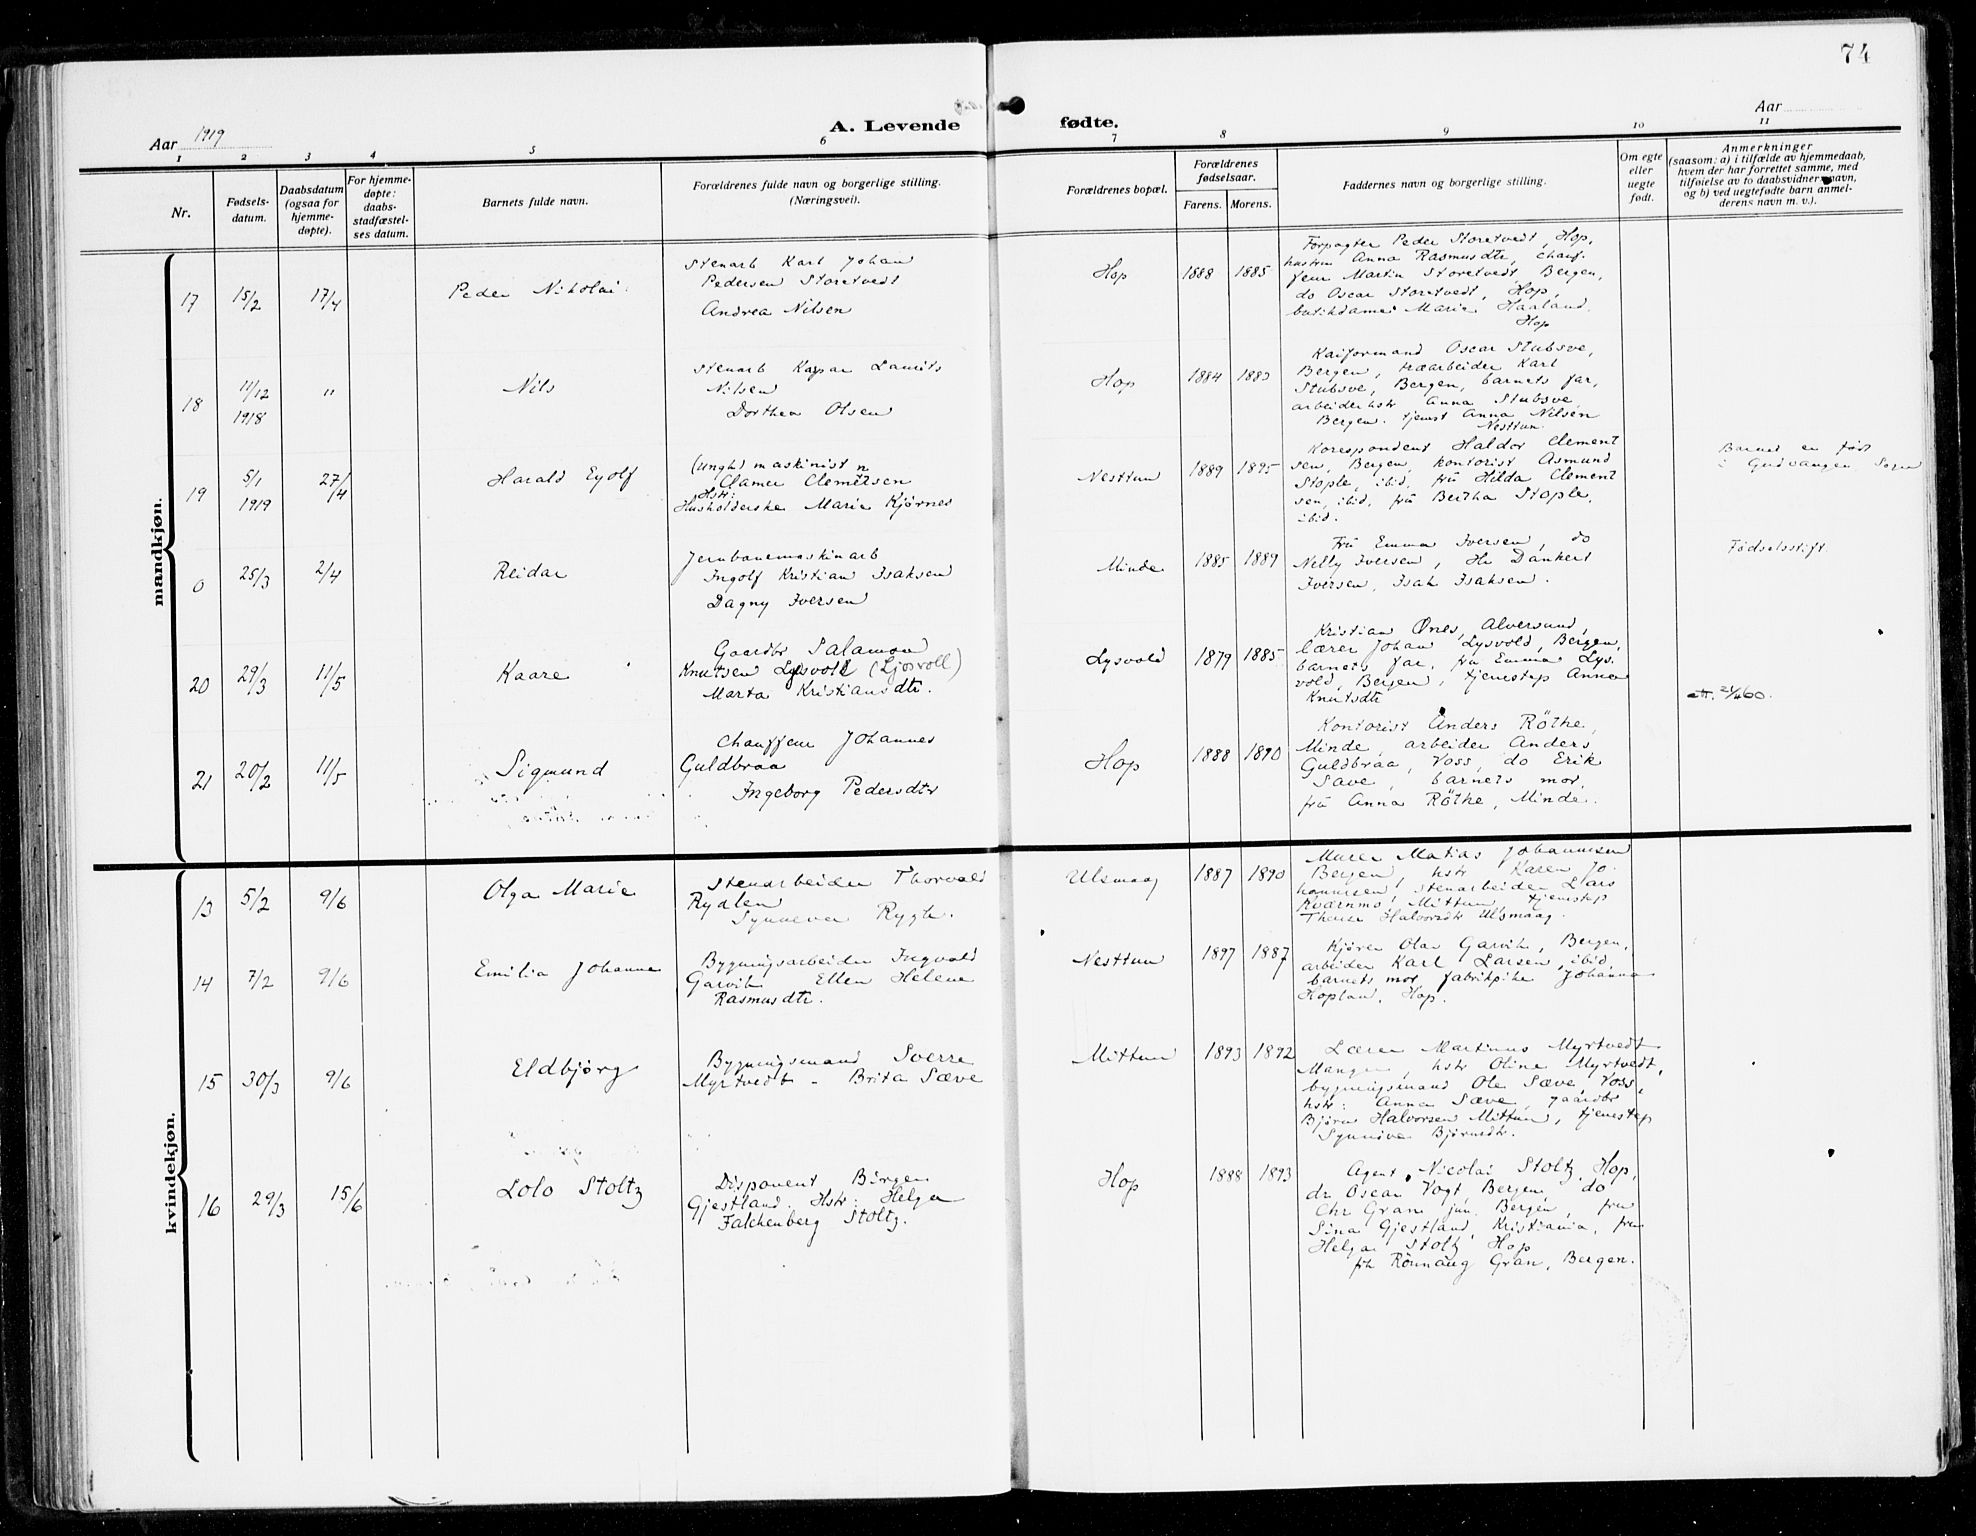 74
Aar 1919
A. Levende fødte.
Aar
1 2 3 4 5 6 7 8 9 10 11
Nr.
Fødsels-
datum.
Daabsdatum
(ogsaa for
hjemme-
døpte).
For hjemme-
døpte:
daabs-
stadfæstel-
ses datum.
Barnets fulde navn.
Forældrenes fulde navn og borgerlige stilling.
(Næringsvei).
Forældrenes bopæl.
Forældrenes
fødselsaar.
Farens. Morens.
Faddernes navn og borgerlige stilling.
Om egte
eller
uegte
født.
Anmerkninger
(saasom: a) i tilfælde av hjemmedaab,
hvem der har forrettet samme, med
tilføielse av to daabsvidners navn,
og b) ved uegtefødte barn anmel-
derens navn m. v.).
mandkjøn.
17 15/2 17/4
Peder Nikolai
Stenarb Karl Johan
Pedersen Storetvedt
Andrea Nilsen
Hop 1888 1885
Forpagter Peder Storetvedt, Hop,
hustru Anna Rasmusdtr, chauf-
feur Martin Storetvedt Bergen,
do Oscar Storetvedt, Hop,
butikdame Marie Haaland
Hop
18 11/12 1918 "
Nils
Stenarb Kaspar Laurits
Nilsen
Dorthea Olsen
Hop 1884 1883
Kaiformand Oscar Stubsve,
Bergen, træarbeider Karl
Stubsve, Bergen, barnets far,
arbeiderhstr Anna Stubsve
Bergen. tjenst Anna Nilsen
Nesttun.
19 5/1 1919 27/4
Harald Eyolf
(Ungk) maskinist
Clamer Clemetsen
Hstr:
Husholderske Marie Kjørnes
Nesttun 1889 1895
Korespondent Haldor Clement
sen, Bergen, kontorist Asmund
Stople, ibid, frü Hilda Clement
sen, ibid, frü Bertha Stople,
ibid.
Barnet er født
i Gudvangen Sogn
0 25/3 2/4
Reidar
Jernbanemaskinarb
Ingolf Kristian Isaksen
Dagny Iversen
Minde 1885 1889
Frü Emma Iversen, do
Nelly Iversen, Hr Dankert
Iversen, Isak Isaksen.
Fødselsstift.
20 29/3 11/5
Kaare
Gaardbr Salamon
Knutsen Lysvold (Ljosvoll)
Marta Kristiansdtr.
Lysvold 1879 1885
Kristian Ønes, Alversund,
lærer Johan Lysvold, Bergen,
barnets far, fru Emma Lys-
vold, Bergen, tjenestep Anna
Knutsdtr
21 20/2 11/5
Sigmund
Chauffeur Johannes
Guldbraa
Ingeborg Pedersdtr
Hop 1888 1890
Kontorist Anders Röthe,
Minde, arbeider Anders
Guldbraa, Voss, do Erik
Save, barnets mor,
frü Anna Röthe, Minde.
kvindekjøn.
13 5/2 9/6
Olga Marie
Stenarbeider Thorvald
Rydlen
Synneva Rygh.
Ulsmaag 1887 1890
Murer Matias Johannesen
Bergen, hstr Karen Jo-
hannesen, stenarbeider Lars
Kværnmo, Mittun, tjenestep
Halvorsdtr Ulsmaag.
14 7/2 9/6
Emilia Johanne
Bygningsarbeider Ingvald
Garvik Ellen Helene
Rasmusdtr.
Nesttun 1897 1887
Kjører Olav Garvik, Bergen,
arbeider Karl Larsen, ibid,
barnets mor fabrikpike Johanna
Hopland, Hop.
15 30/3 9/6
Eldbjørg
Bygningsmand Sverre
Myrtvedt - Brita Sæve
Mittun 1893 1892
Lærer Martinus Myrtvedt
Manger, hstr Oline Myrtvedt,
bygningsmand Ole Sæve, Voss,
hstr: Anna Sæve, gaardbr
Bjørn Halvorsen Mittun, tjenestep
Synnöve Bjørnsdtr.
16 29/3 15/6
Lolo Stoltz
Disponent Børgen
Gjestland. Hstr: Helga
Falckenberg Stoltz.
Hop 1888 1893
Agent Nicolai Stoltz, Hop,
dr. Oscar Vogt, Bergen, do
Chr Gran jun. Bergen, fru
Sina Gjestland, Kristiania, fru
Helga Stoltz Hop
frk Rönnaug Gran, Bergen.